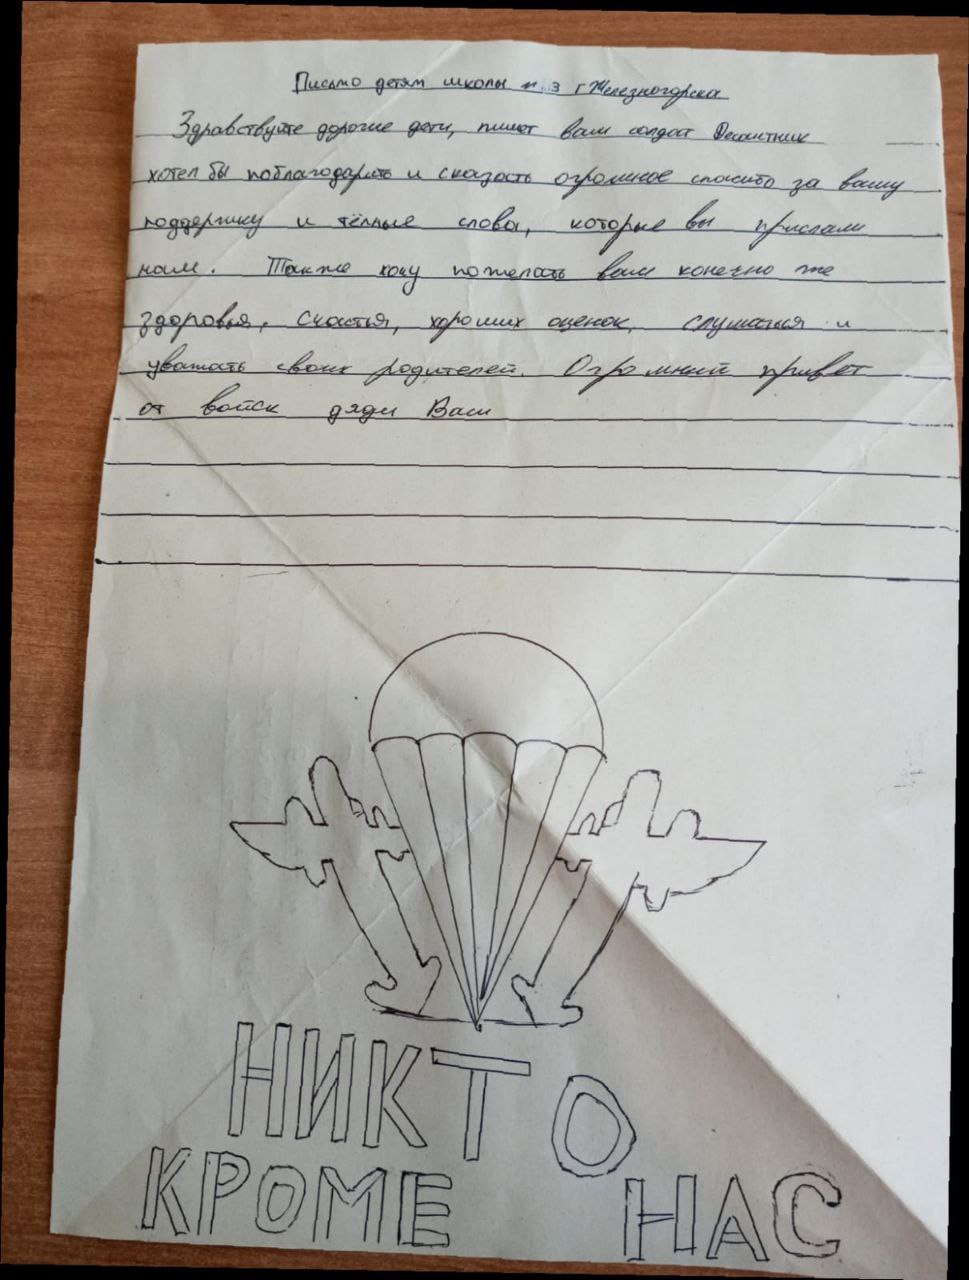 Письмо детям школы № 3 г Железногорска
Здравствуйте дорогие дети, пишет вам солдат Десантник
хотел бы поблагодарить и сказать огромное спасибо за вашу
поддержку и тёплые слова, которые вы прислали
нам. Также хочу пожелать вам конечно же
здоровья, счастья, хороших оценок, слушаться и
уважать своих родителей. Огромный привет
от войск дяди Васи
НИКТО
КРОМЕ НАС